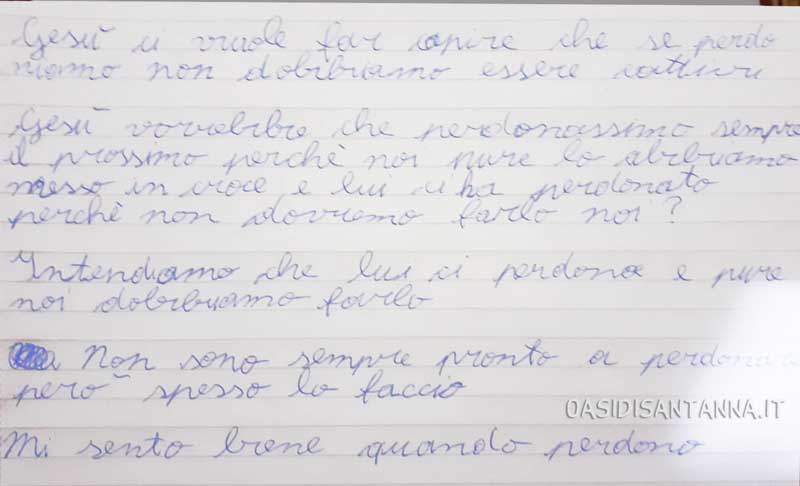 Gesù ci vuole far capire che se perdo
niamo non dobbiamo essere cattivi
Gesù vorrebbe che perdonassimo sempre
il prossimo perchè noi pure lo abbiamo
messo in croce e lui ci ha perdonato
perchè non dovremo farlo noi?
Intendiamo che lui ci perdona e pure
noi dobbiamo farlo
Non sono sempre pronto a perdonare
però spesso lo faccio
OASIDISANTANNA.IT
Mi sento bene quando perdono